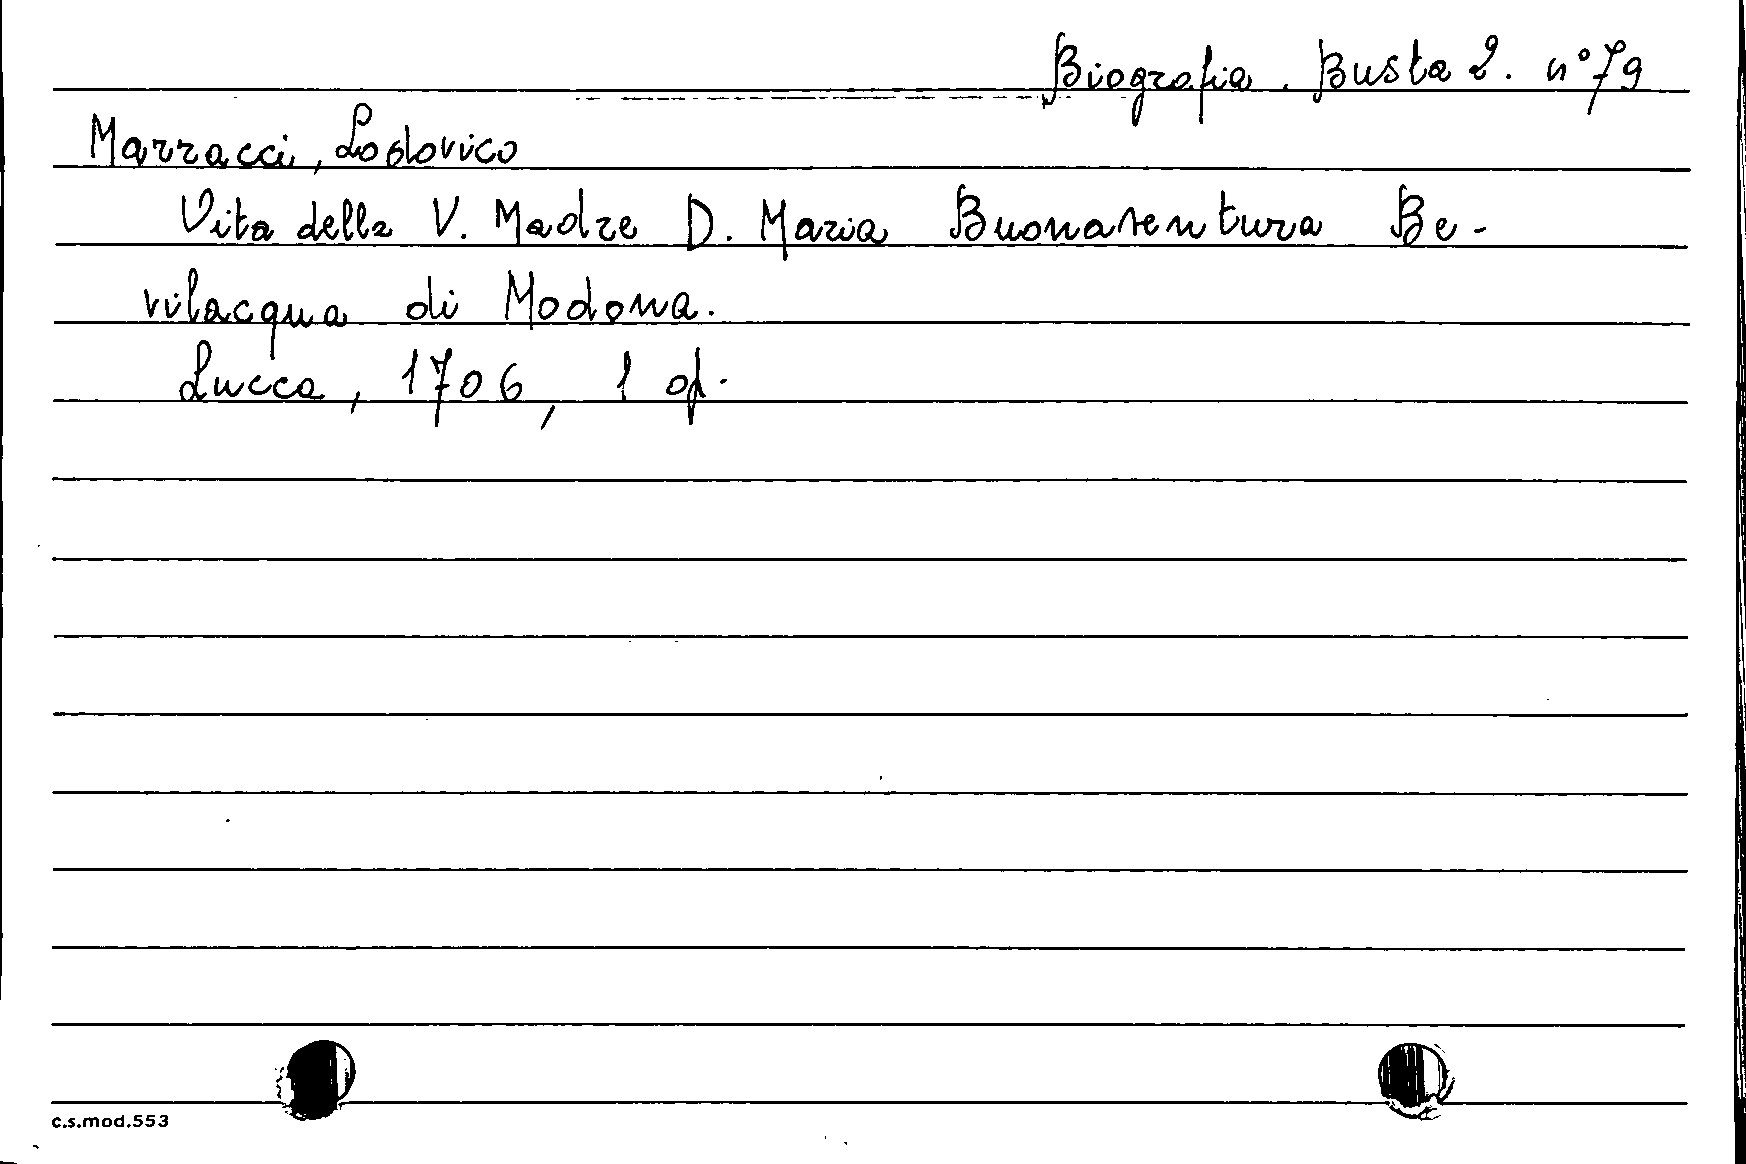 Biografia. Busta 2. n°79
Marracci, Lodovico
Vita della V. Madre D. Maria Buonaventura Be-
vilacqua di Modona.
Lucca, 1706, 1 op.
c.s.mod.553